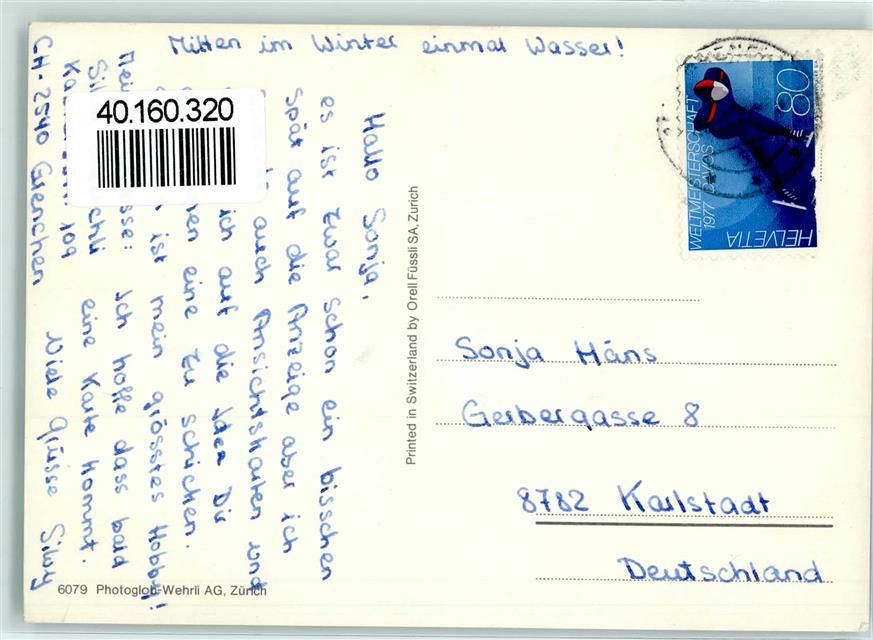 Mitten im Winter einmal Wasser!
Hallo Sonja,
es ist zwar schon ein bisschen
spät auf die Anzeige aber ich
auch Ansichtskarten und
ich auf die Idee Dir
eine zu schicken.
ist mein grösstes Hobby!
Ich hoffe dass bald
eine Karte kommt.
Viele Grüsse Silvy
109
CH-2540 Grenchen
40.160.320
HELVETIA
80
WELTMEISTERSCHAFT
1977 DAVOS
Printed in Switzerland by Orell Füssli SA, Zurich
Sonja Häns
Gerbergasse 8
8782 Karlstadt
Deutschland
6079 Photoglob-Wehrli AG, Zürich